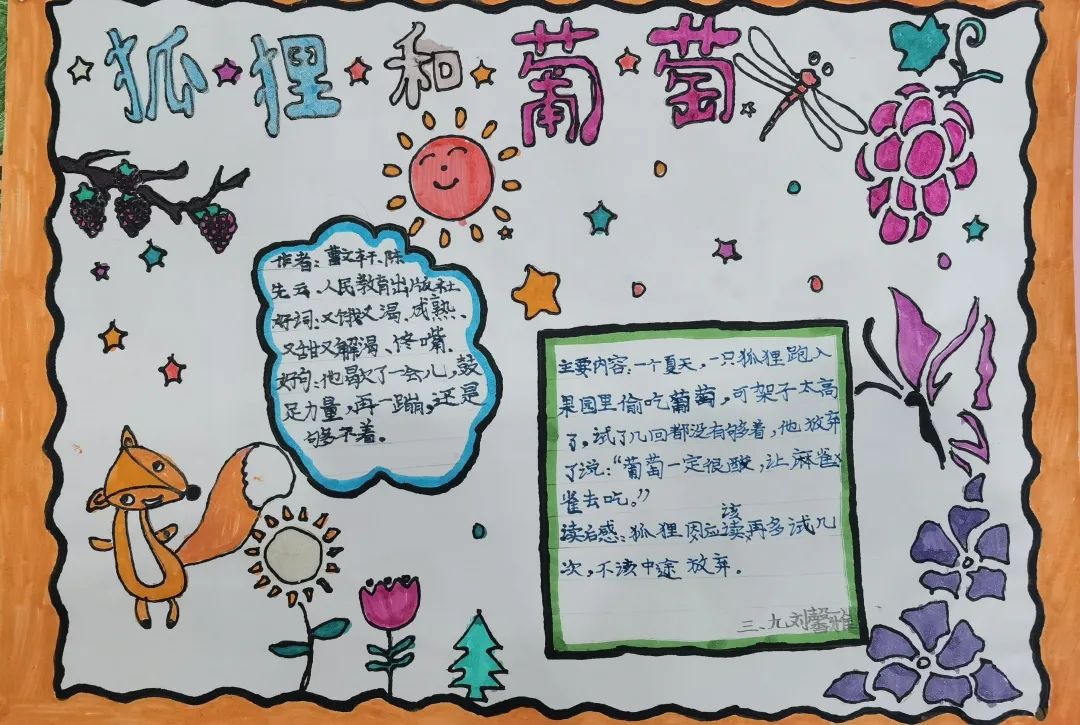 狐狸和葡萄
作者：曹文轩、陈
先云、人民教育出版社
好词：又饿又渴、成熟、
又甜又解渴、馋嘴。
好句：他歇了一会儿，鼓
足力量，再一蹦，还是
够不着。
主要内容：一个夏天，一只狐狸跑入
果园里偷吃葡萄，可架子太高
了。试了几回都没有够着，他放弃
了说：“葡萄一定很酸，让麻雀
雀去吃。”
该
读后感：狐狸因应读再多试几
次，不该中途放弃。
三、九刘馨雅